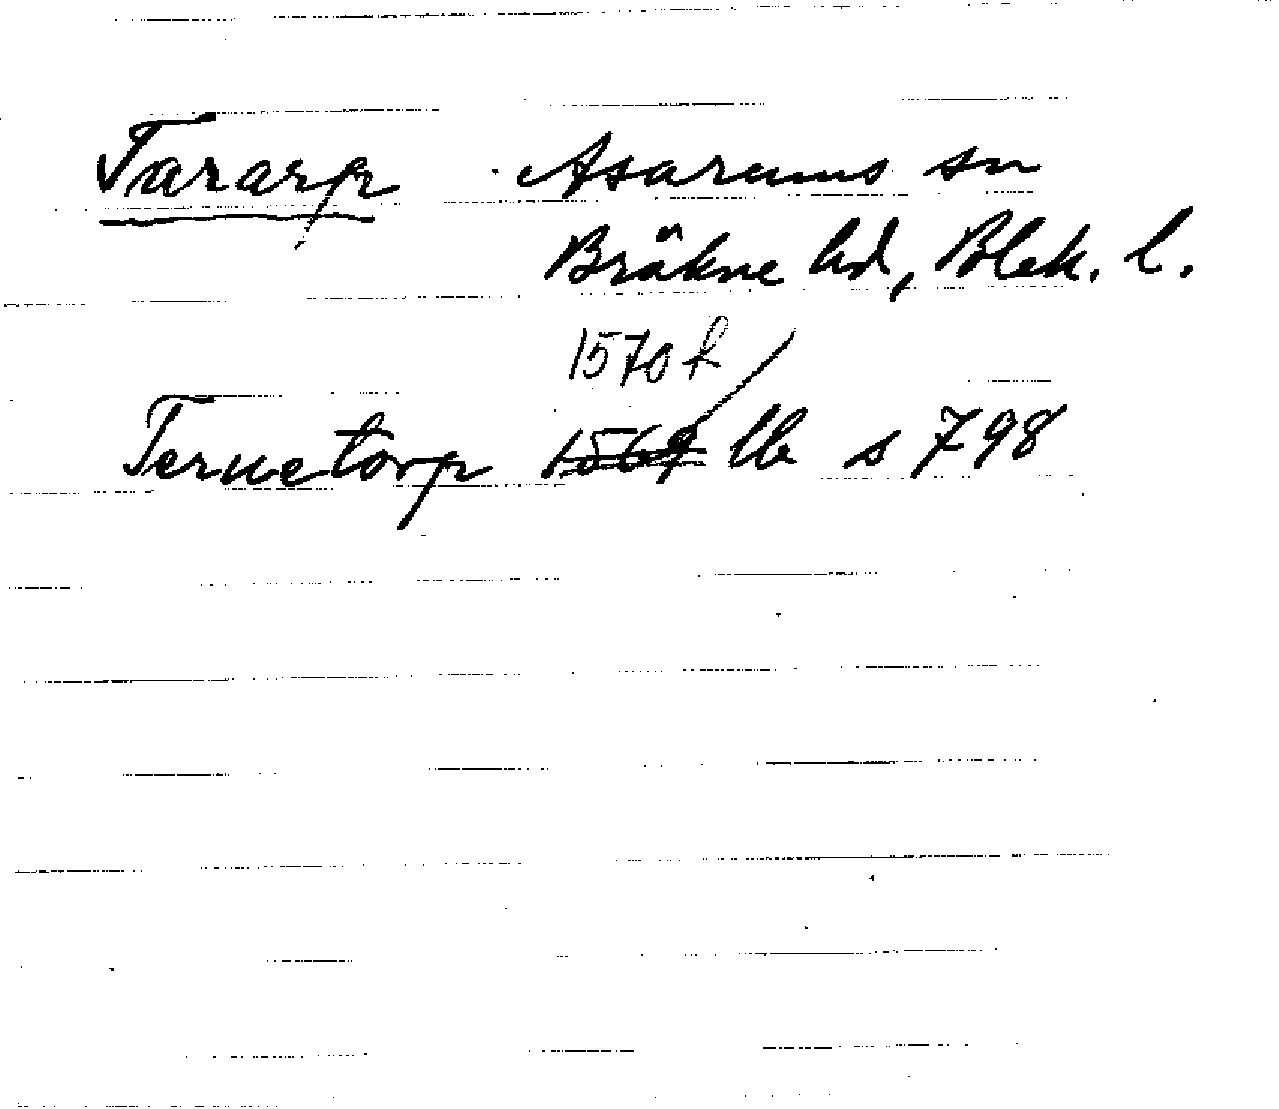 Tararp Asarums sn
Bräkne hd, Blek. l.
1570 f
Ternetorp 1569 lb s 798